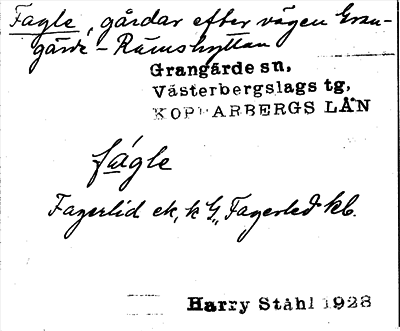 Fagle, gårdar efter vägen Gran-
gärde - Rämshyttan
Grangärde sn,
Västerbergslags tg,
KOPPARBERGS LÄN
fágle
Fagerlid ek, k G, Fagerled kb.
Harry Ståhl 1928